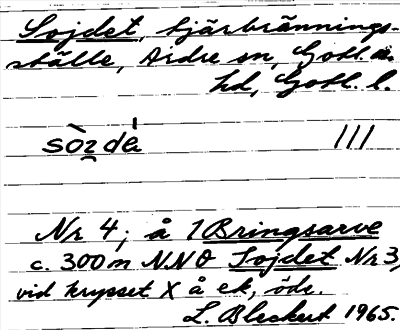 Sojdet, tjärbrännings-
ställe, Ardre sn, Gotl. s.
hd, Gotl. l.
sòzde ///
Nr 4; å 1 Bringsarve
c. 300 m NNO Sojdet Nr 3,
vid krysset X å ek, öde.
L. Bleckert 1965.